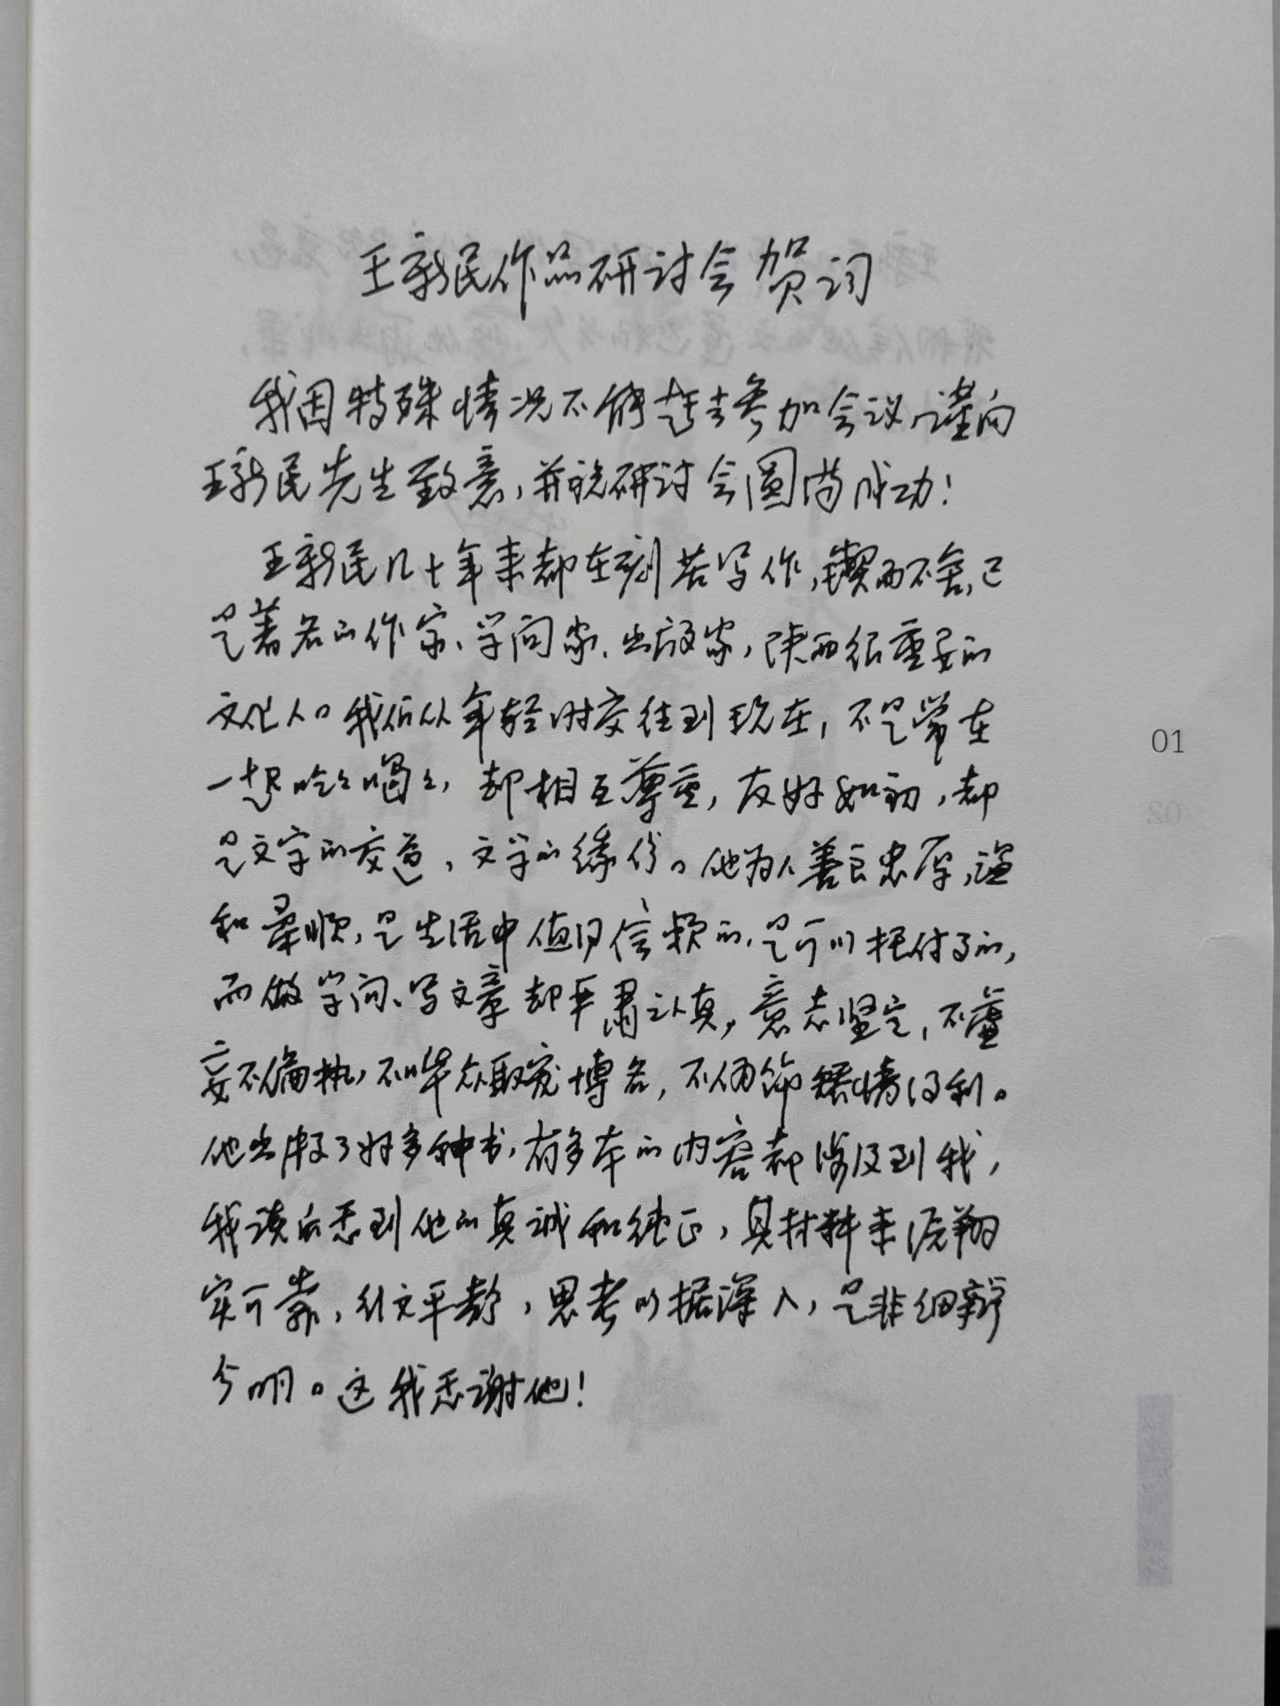 王新民作品研讨会贺词
我因特殊情况不能赶去参加会议，谨向
王新民先生致意，并祝研讨会圆满成功！
王新民几十年来都在刻苦写作，锲而不舍，已
是著名的作家、学问家、出版家，陕西很重要的
文化人。我们从年轻时交往到现在，不是常在
一起吃吃喝喝，却相互尊重，友好如初，却
是文字的交道，文学的缘份。他为人善良忠厚，温
和柔顺，是生活中值得信赖的，是可以托付事的，
而做学问、写文章却严肃认真，意志坚定，不虚
妄不偏执，不哗众取宠博名，不伪饰矫情得利。
他出版了好多种书，有多本的内容都涉及到我，
我读后感到他的真诚和纯正，其材料来源翔
实可靠，行文平静，思考的据深入，是非细辩
分明。这我感谢他！
01
02